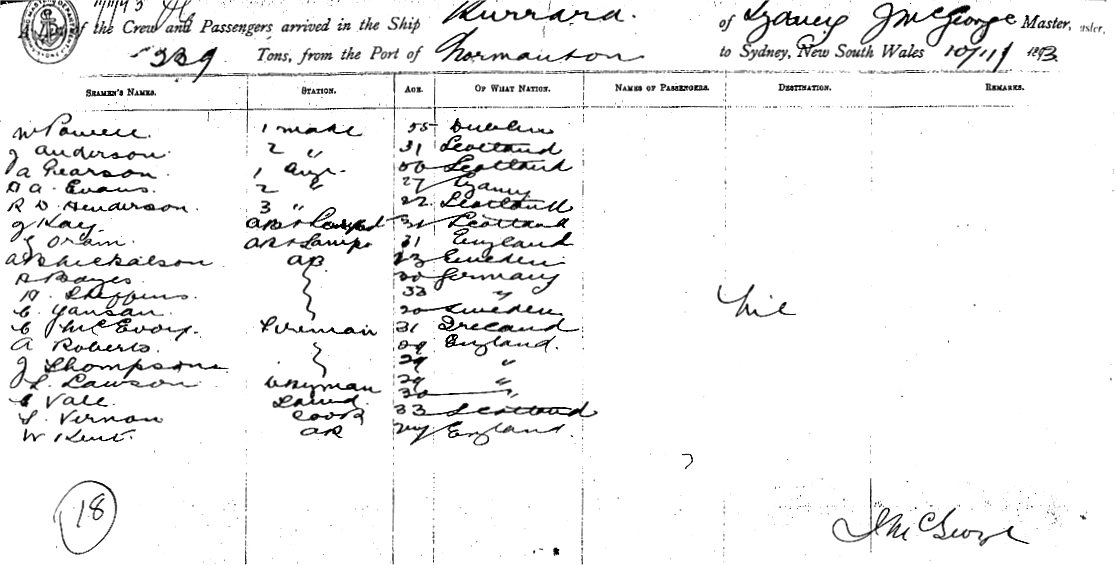 of the Crew and Passengers arrived in the Ship Burrard. of Sydney J McGeorge Master,
239 Tons, from the Port of Normanton to Sydney, New South Wales 10/11 1893
SEAMEN'S NAMES. STATION. AGE. OF WHAT NATION. NAMES OF PASSENGERS. DESTINATION. REMARKS.
W Powell. 1 mate 55 Dublin
J Anderson 2 " 31 Scotland
A Pearson 1 Eng. 50 Scotland
A. Evans. 2 " 27 Sydney
R D. Henderson. 3 " 22 Scotland
J Kay. AB & 31 Scotland
J Oram. AB & Lamps 31 England
AB 23 Sweden
Bayes. 30 Germany
33 "
C. Yansan. 20 Sweden
Nil
C McEvoy. Fireman 31 Ireland
A Roberts. 29 England.
J Thompson 29 "
L. Lawson 29 "
Vale 30 "
S. Vernon Cook 33 Scotland
W Kent. AB England.
18
J McGeorge